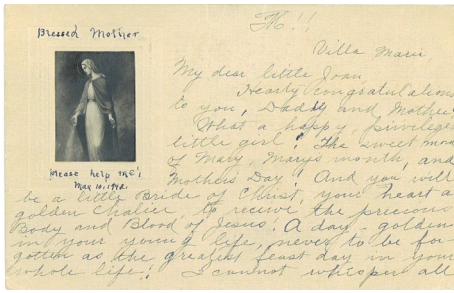 Blessed Mother
please help me!
May 10, 1942.
Villa Marie
My dear little Joan
Hearty congratulations
to you, Daddy and Mother!
What a happy, privileged
little girl! The sweet
of Mary, Mary's month, and
Mother's Day! And you will
be a little Bride of Christ, your heart a
golden Chalice, to receive the precious
Body and Blood of Jesus! A day - golden
in your young life, never to be for-
gotten as the greatest feast day in your
whole life! I cannot whisper all